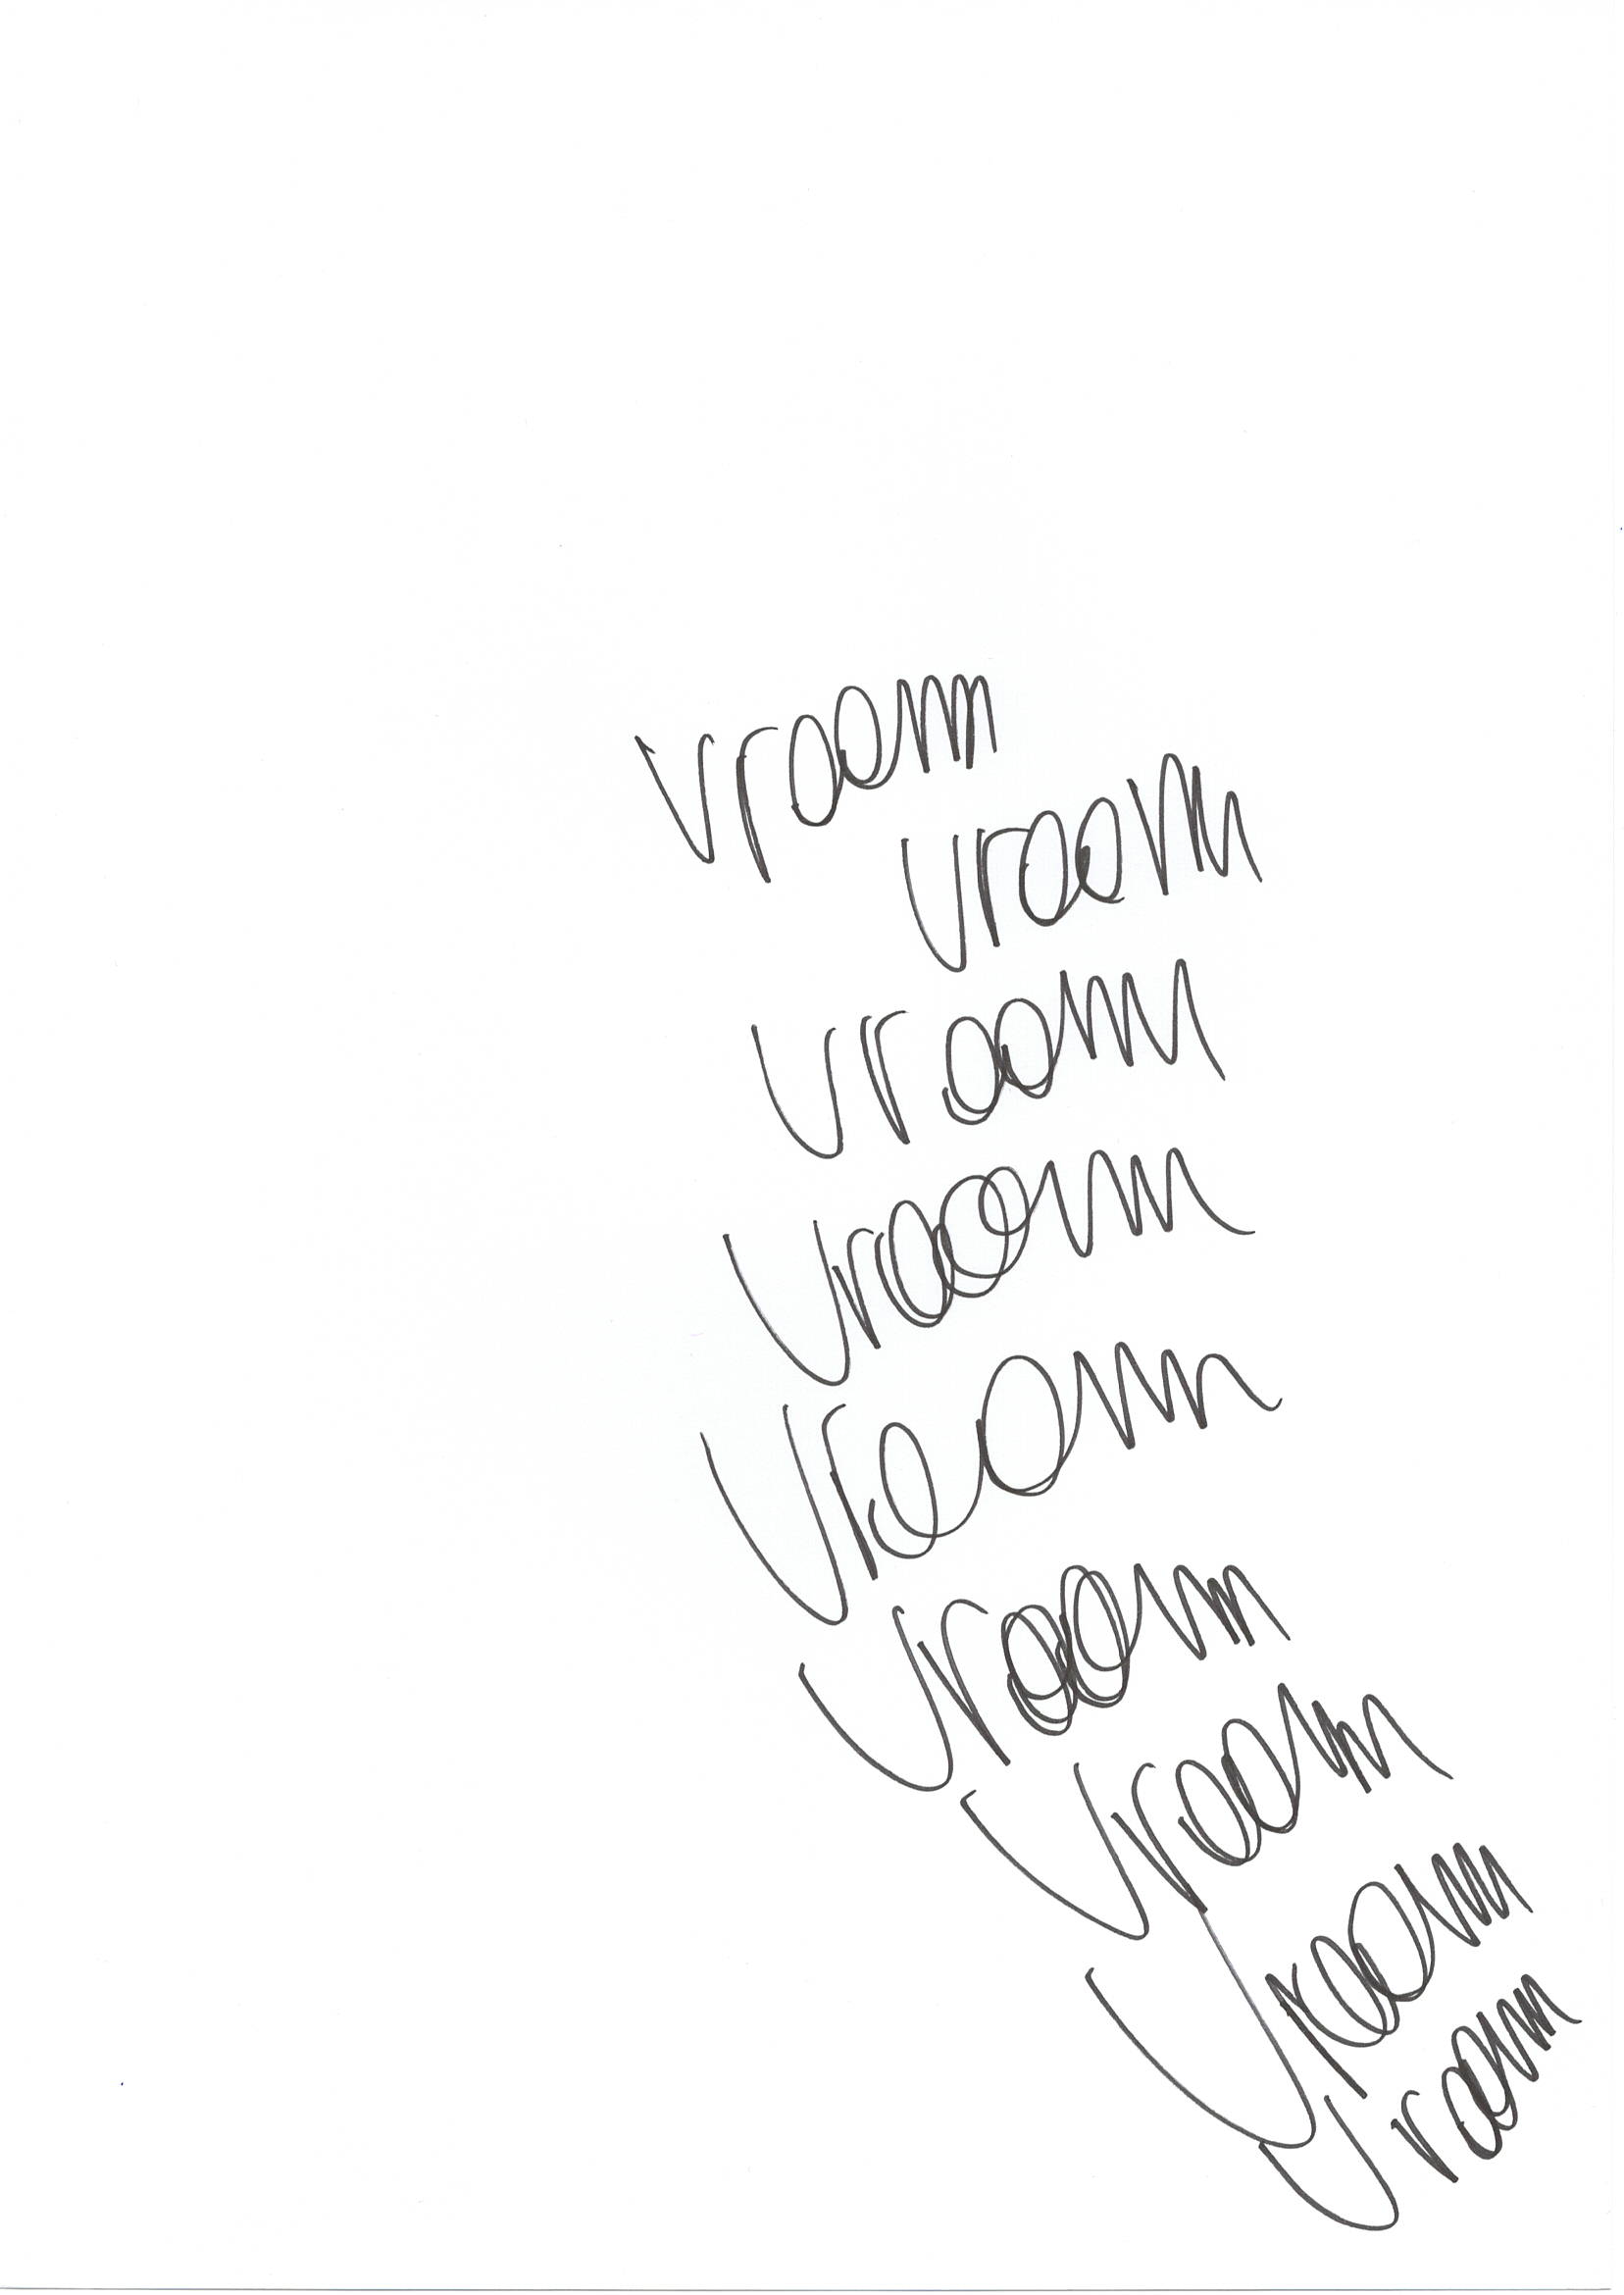 vroom
vroom
vroom
vroom
Vroom
Vroom
Vroom
Vroom
Vroom